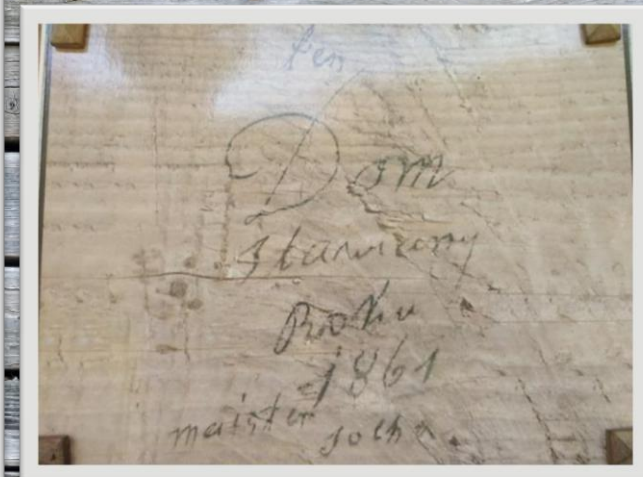 Ten
Dom
stawiany
Roku
1861
maister
Socha